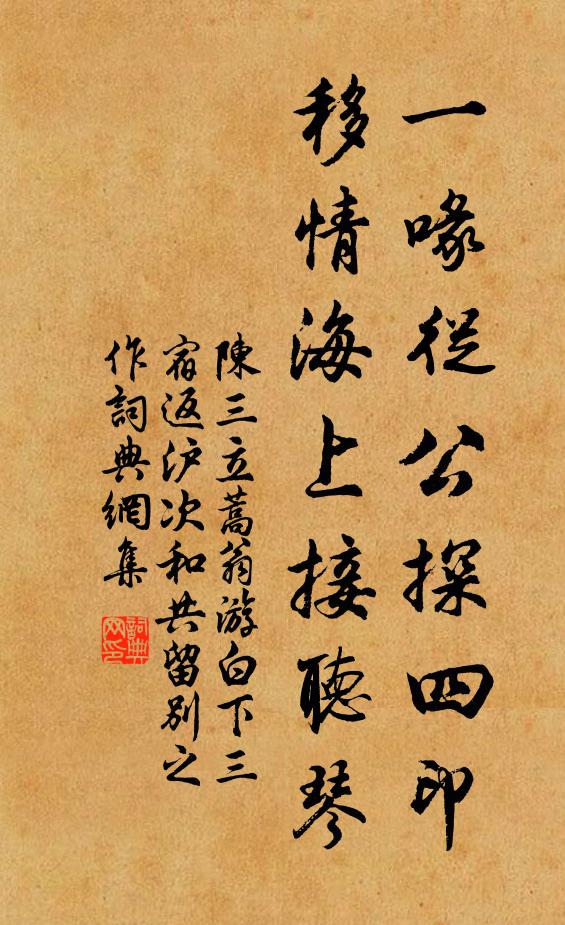 一喙從公探四印
移情海上接聽琴
陳三立蒿翁游白下三
宿返沪次和共留別之
作詞典網集
詞典
网印